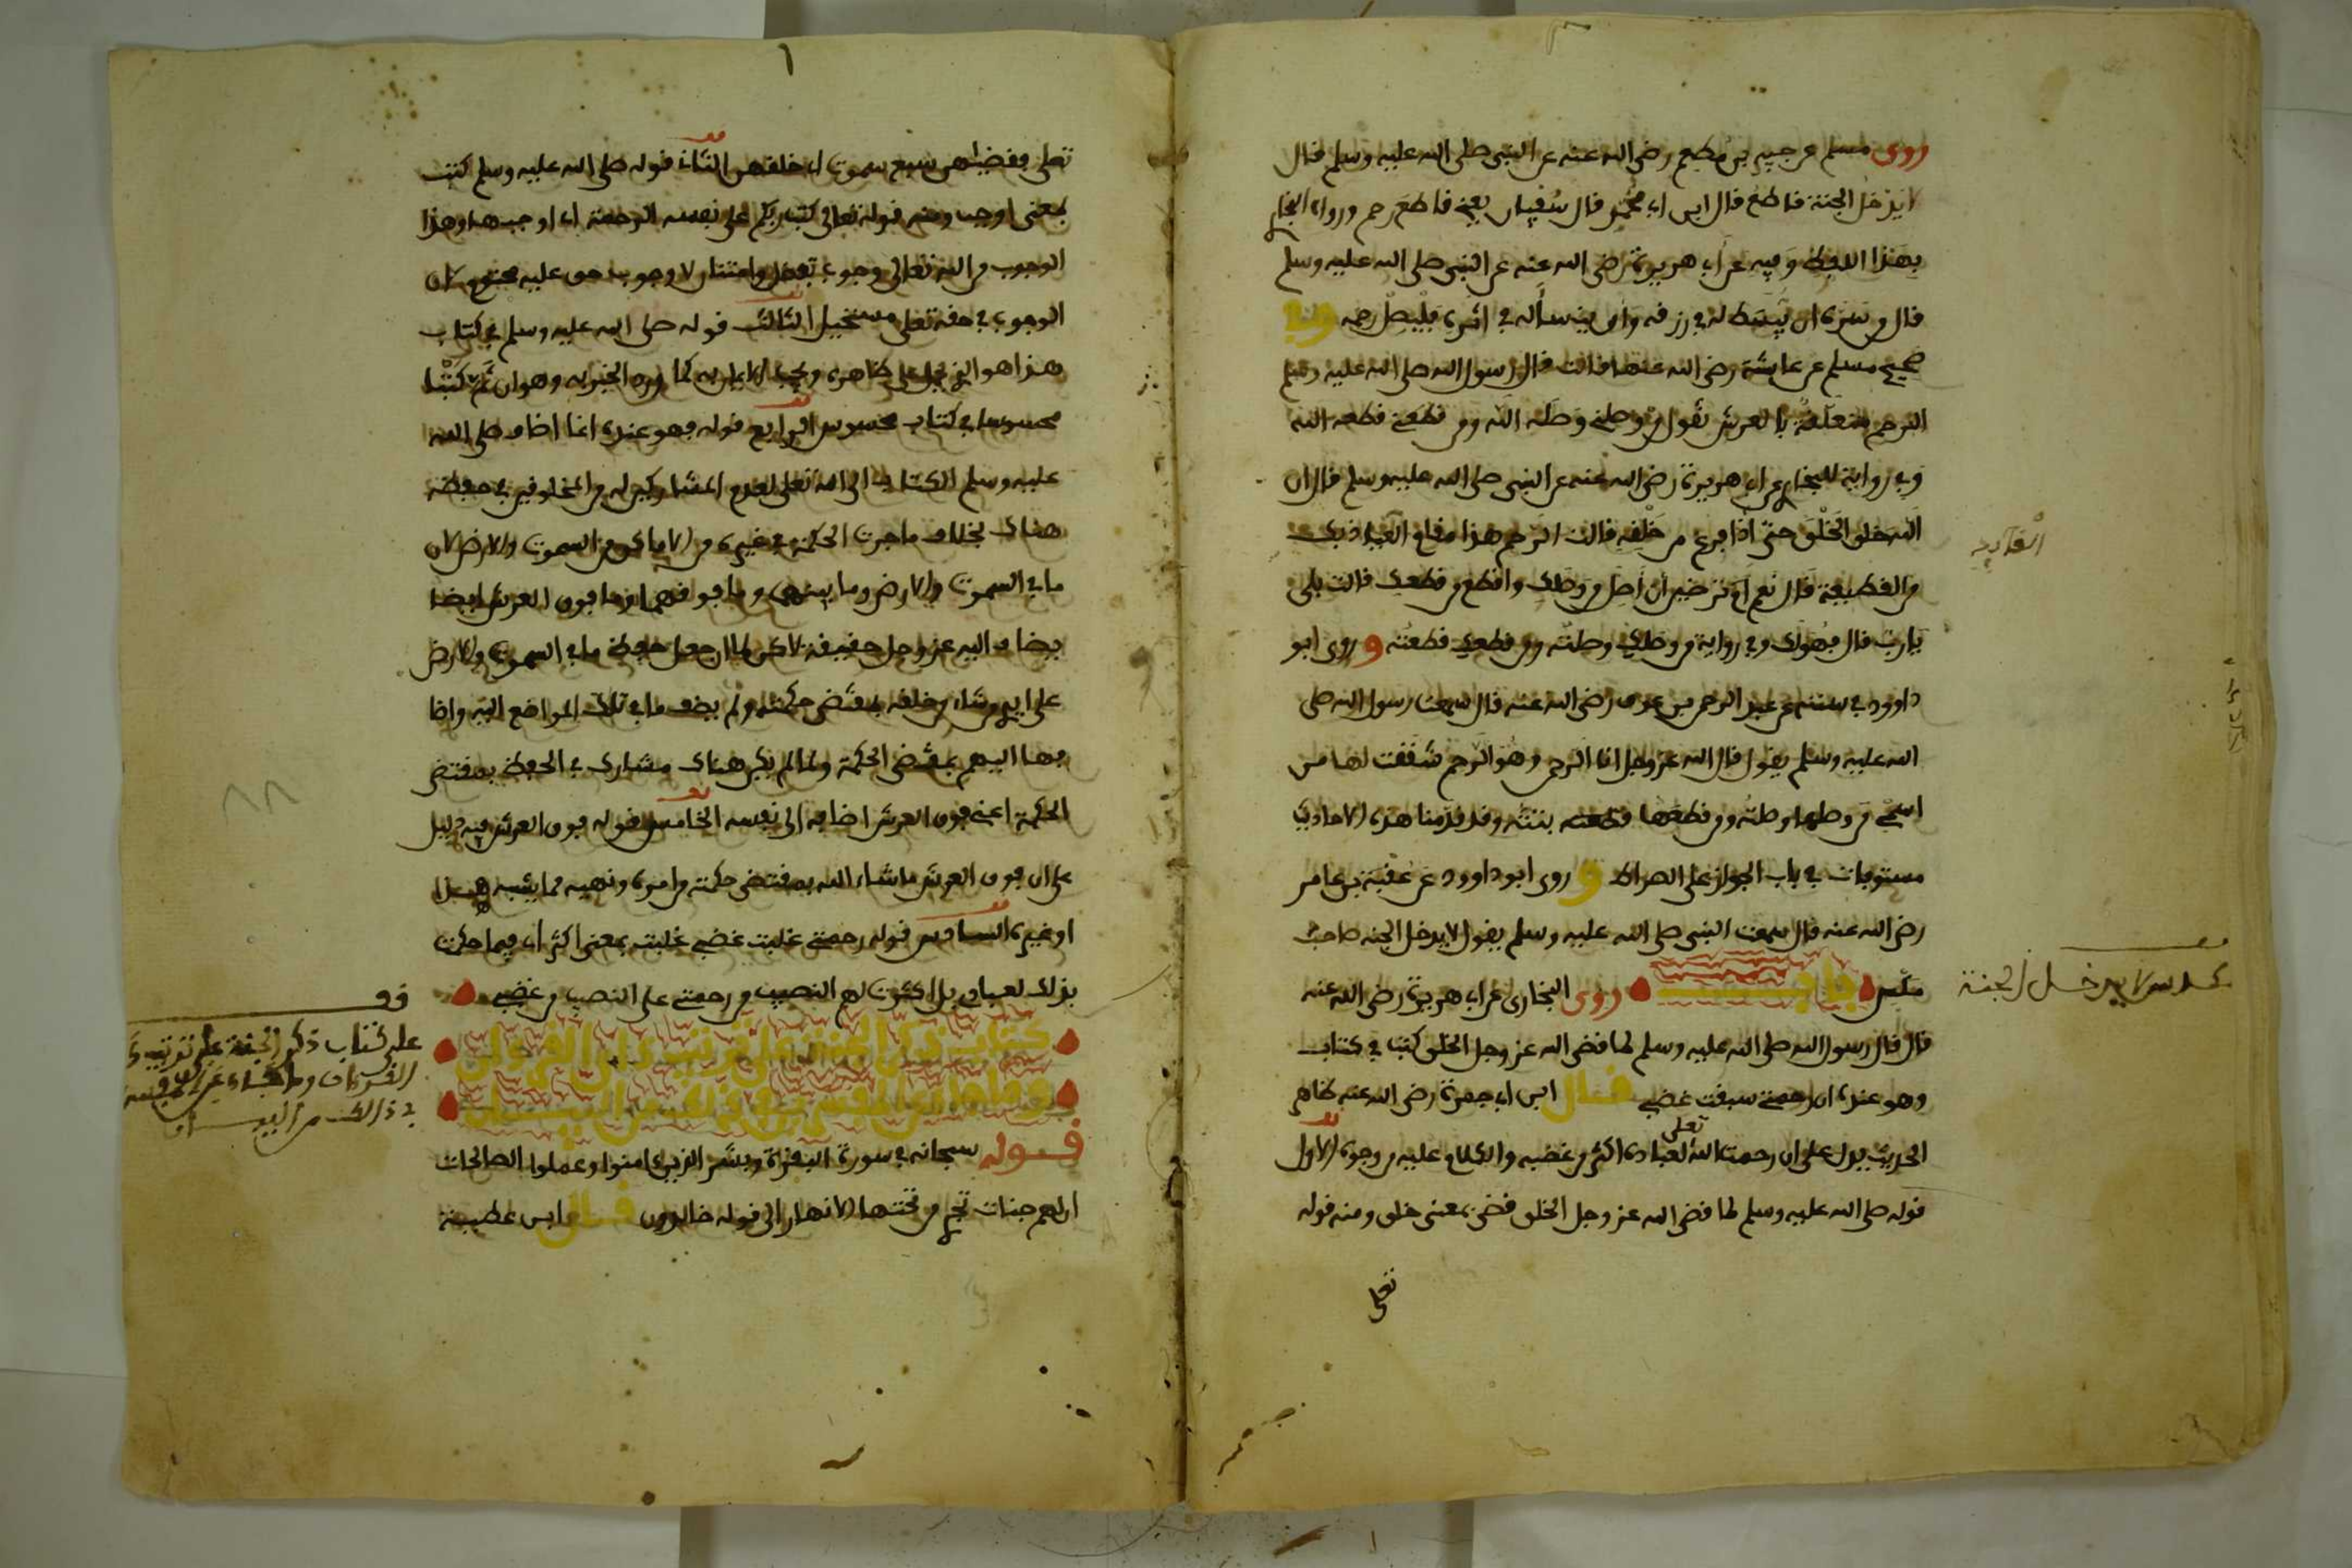 روى مسلم عن جبير بن مطعم رضي الله عنه عن النبي صلى الله عليه وسلم قال
لا يدخل الجنة قاطع قال ابن ابي عمر قال سفيان يعني قاطع رحم ورواه البخاري
بهذا اللفظ وفيه عن أبي هريرة رضي الله عنه عن النبي صلى الله عليه وسلم
قال من سره ان يبسط له في رزقه وان ينسأ له في اثره فليصل رحمه وفي
صحيح مسلم عن عائشة رضي الله عنها قالت قال رسول الله صلى الله عليه وسلم
الرحم متعلقة بالعرش تقول من وصلني وصله الله ومن قطعني قطعه الله
وفي رواية للبخاري عن ابي هريرة رضي الله عنه عن النبي صلى الله عليه وسلم قال ان
الله خلق الخلق حتى اذا فرغ من خلقه قالت الرحم هذا مقام العائذ بك
من القطيعة قال نعم أما ترضين أن أصل من وصلك واقطع من قطعك قالت بلى
يا رب قال فهو لك وفي رواية من وصلك وصلته ومن قطعك قطعته و روى ابو
داوود في سننه عن عبد الرحمن بن عوف رضي الله عنه قال سمعت رسول الله صلى
الله عليه وسلم يقول قال الله عز وجل انا الرحمن وهو الرحم شققت لها من
اسمي من وصلها وصلته ومن قطعها قطعته بتته وقد قدمنا هذه الاحاديث
مستوفات في باب الجواز على الصراط و روى ابو داوود عن عقبة بن عامر
رضي الله عنه قال سمعت النبي صلى الله عليه وسلم يقول لا يدخل الجنة صاحب
مكس باب روى البخاري عن ابي هريرة رضي الله عنه
قال قال رسول الله صلى الله عليه وسلم لما قضى الله عز وجل الخلق كتب في كتاب
وهو عنده ان رحمتي سبقت غضبي قال ابن ابي جمرة رضي الله عنه ظاهر
الحديث يدل على ان رحمت الله تعلى لعباده اكثر من غضبه والكلام عليه من وجوه الاول
قوله صلى الله عليه وسلم لما قضى الله عز وجل الخلق قضى بمعنى خلق ومنه قوله
تعلى
لا يدخل الجنة
تعلى فقضيهن سبع سموت اي خلقهن الثاني قوله صلى الله عليه وسلم كتب
بمعنى اوجب ومنه قوله تعالى كتب ربكم على نفسه الرحمة اي اوجبها وهذا
الوجوب من الله تعالى وجوب تفضل وامتنان لا وجوب حق عليه محتوم لان
الوجوب في حقه تعلى مستحيل الثالث قوله صلى الله عليه وسلم في كتاب
هذا هو الذي يحمل على ظاهره ويجب الايمان به كما ورد الخبر به وهو ان ثم كتبا
محسوسا في كتاب محسوس الرابع قوله فهو عنده انما اضاف صلى الله
عليه وسلم الكتاب الى الله تعلى لعدم المشاركين له من المخلوقين في حفظه
هناك بخلاف ما جرت الحكمة في غيره من الاماكن من السموت والارض لان
ما في السموت والارض وما بينهما وما فوقهما وما فوق العرش ايضا
يضاف اليه عز وجل حقيقة لاكن لما ان جعل حفظ ما في السموت والارض
على ايدي من شاء من خلقه بمقتضى حكمته ولم يضف ما في تلك المواضع اليه واضا
فها اليهم بمقتضى الحكمة ولما لم يكن هناك مشارك في الحفظ بمقتضى
الحكمة اعني فوق العرش اضافه الى نفسه الخامس قوله فوق العرش فيه دليل
على ان فوق العرش ما شاء الله بمقتضى حكمته وامره ونهيه مما يشبه هذا
او غيره السادس قوله رحمتي غلبت غضبي غلبته بمعنى اكثر اي فيما حكمت
بذلك لعبادي بل اكثرت لهم النصيب من رحمتي على النصيب من غضبي
كتاب ذكر الجنة على ترتيب داي القرءان
قوله سبحانه في سورة البقرة وبشر الذين ءامنوا وعملوا الصالحات
ان لهم جنات تجري من تحتها الانهار الى قوله خالدون قال ابن عطية
قف
على كتاب ذكر الجنة على ترتيب
القرءان وما جاء عن
في ذالك من البيان